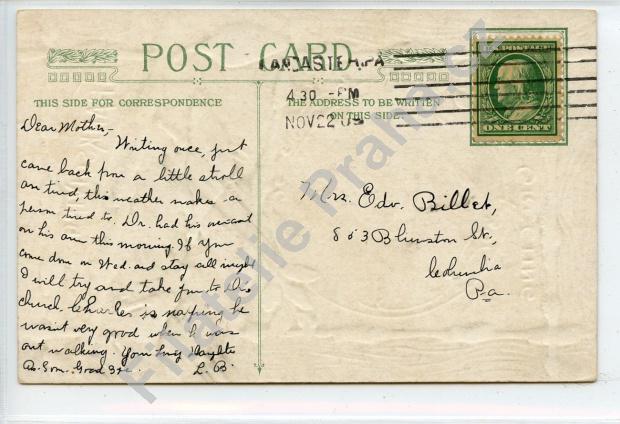 POST CARD
THIS SIDE FOR CORRESPONDENCE
THE ADDRESS TO BE WRITTEN
ON THIS SIDE
LANCASTER, PA
4 30 - PM
NOV 22 09
U.S. POSTAGE
ONE CENT
Dear Mother,-
Writing once, just
came back from a little stroll
am tired, this weather makes a
person tired to. Dr. had his
on his arm this morning. If you
come down on Wed. and stay all night
I will try and take you to
church. Charles is napping he
wasn't very good when he was
out walking. Your
L. B.
Mrs. Edw. Billet,
803 Blunston St,
Columbia
Pa.
Filatelie Praha.cz